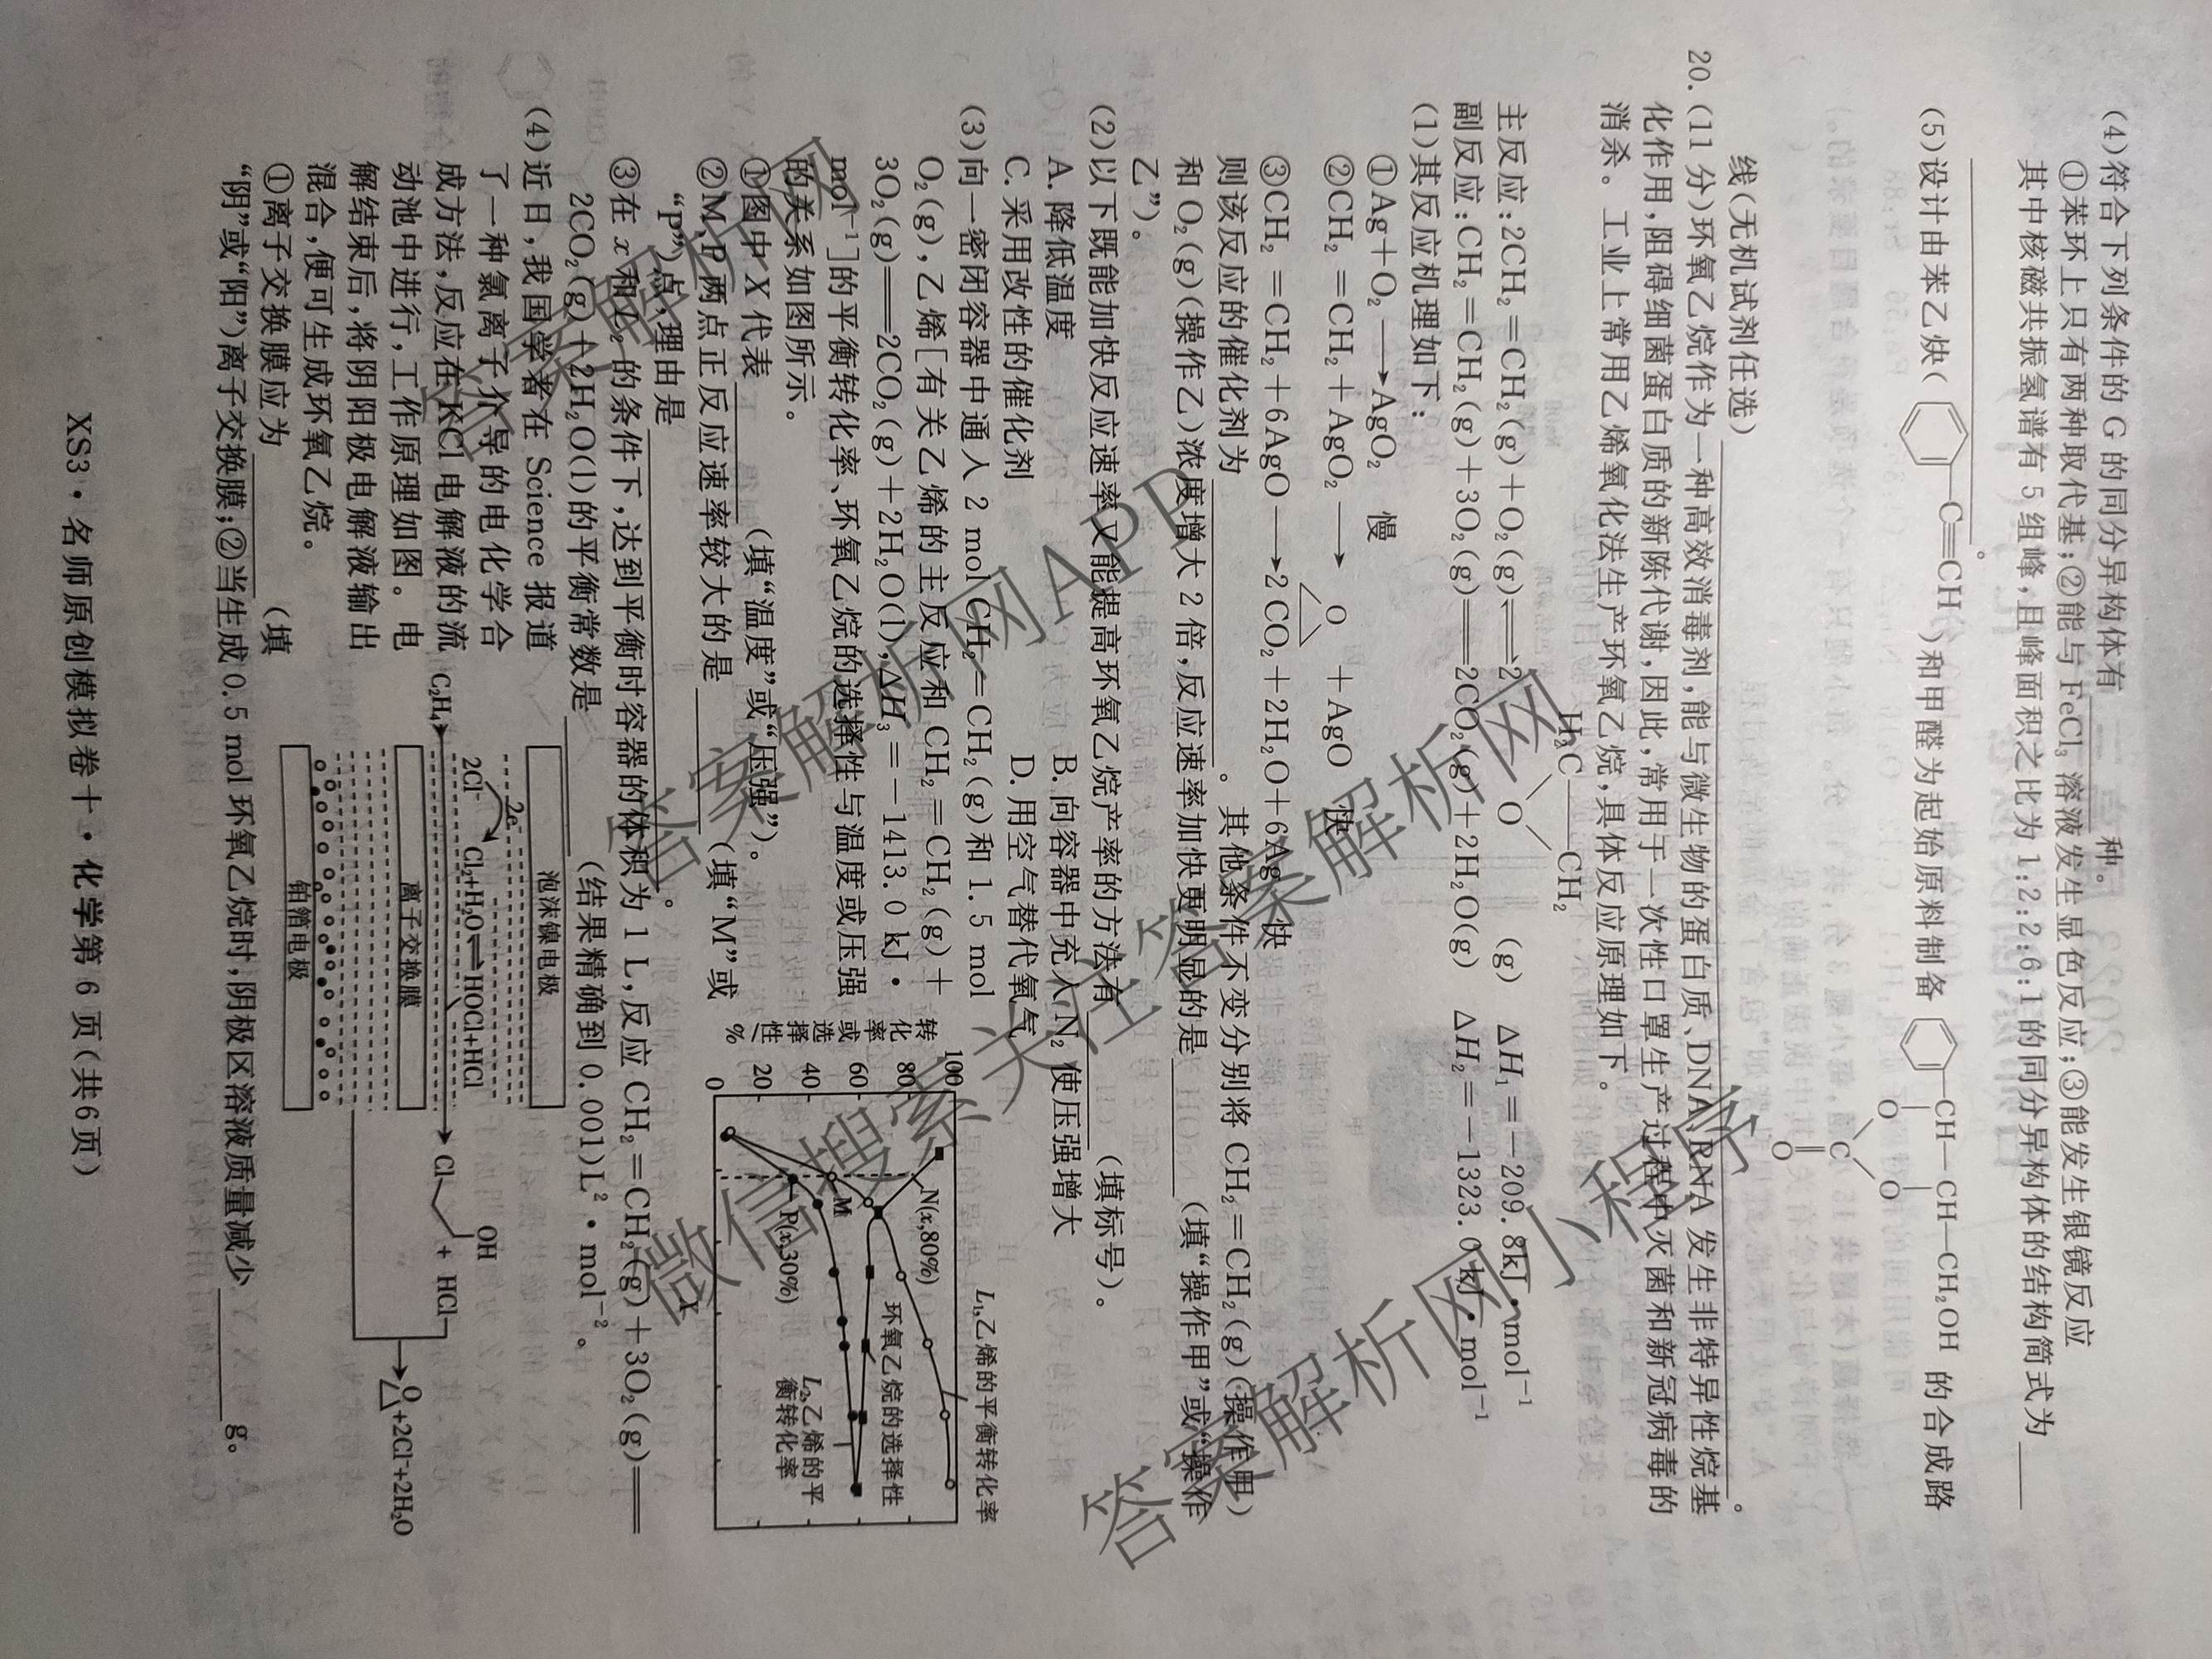 (4)符合下列条件的 G 的同分异构体有______种。
①苯环上只有两种取代基;②能与 FeCl₃ 溶液发生显色反应;③能发生银镜反应
其中核磁共振氢谱有 5 组峰,且峰面积之比为 1:2:2:6:1 的同分异构体的结构简式为____
______。
(5)设计由苯乙炔( C≡CH )和甲醛为起始原料制备 CH—CH—CH₂OH 的合成路
O O
C
O
线(无机试剂任选)______。
20.(11 分)环氧乙烷作为一种高效消毒剂,能与微生物的蛋白质、DNA、RNA 发生非特异性烷基
化作用,阻碍细菌蛋白质的新陈代谢,因此,常用于一次性口罩生产过程中灭菌和新冠病毒的
消杀。工业上常用乙烯氧化法生产环氧乙烷,具体反应原理如下。
H₃C——CH₂
O
主反应:2CH₂=CH₂(g)+O₂(g)⇌2 (g) ΔH₁=-209.8kJ·mol⁻¹
副反应:CH₂=CH₂(g)+3O₂(g)══2CO₂(g)+2H₂O(g) ΔH₂=-1323.0 kJ·mol⁻¹
(1)其反应机理如下:
①Ag+O₂⟶AgO₂ 慢
②CH₂=CH₂+AgO₂⟶ O +AgO 快
③CH₂=CH₂+6AgO⟶2CO₂+2H₂O+6Ag 快
则该反应的催化剂为______。其他条件不变分别将 CH₂=CH₂(g)(操作甲)
和 O₂(g)(操作乙)浓度增大 2 倍,反应速率加快更明显的是______(填“操作甲”或“操作
乙”)。
(2)以下既能加快反应速率又能提高环氧乙烷产率的方法有______(填标号)。
A.降低温度 B.向容器中充入 N₂ 使压强增大
C.采用改性的催化剂 D.用空气替代氧气
(3)向一密闭容器中通入 2 mol CH₂=CH₂(g)和 1.5 mol
O₂(g),乙烯[有关乙烯的主反应和 CH₂=CH₂(g)+
3O₂(g)══2CO₂(g)+2H₂O(l),ΔH₃=-1413.0 kJ·
mol⁻¹]的平衡转化率、环氧乙烷的选择性与温度或压强
的关系如图所示。
①图中 X 代表______(填“温度”或“压强”)。
②M、P 两点正反应速率较大的是______(填“M”或
“P”)点,理由是______。
转化率或选择性/%
100
80
60
40
20
0
L₁,乙烯的平衡转化率
N(x,80%)
环氧乙烷的选择性
M
P(x,30%)
L₂,乙烯的平
衡转化率
X
③在 x 和 L₂ 的条件下,达到平衡时容器的体积为 1 L,反应 CH₂=CH₂(g)+3O₂(g)══
2CO₂(g)+2H₂O(l)的平衡常数是______(结果精确到 0.001)L²·mol⁻²。
(4)近日,我国学者在 Science 报道
了一种氯离子介导的电化学合
成方法,反应在 KCl 电解液的流
动池中进行,工作原理如图。电
解结束后,将阴阳极电解液输出
混合,便可生成环氧乙烷。
①离子交换膜应为______(填
“阴”或“阳”)离子交换膜;②当生成 0.5 mol 环氧乙烷时,阴极区溶液质量减少______g。
泡沫镍电极
2e⁻
2Cl⁻ Cl₂+H₂O⇌HOCl+HCl
C₂H₄
Cl OH + HCl
离子交换膜
O +2Cl⁻+2H₂O
铂箔电极
XS3·名师原创模拟卷十·化学第 6 页(共6页)
答案解析网APP
微信搜索关注答案解析网
答案解析网小程序